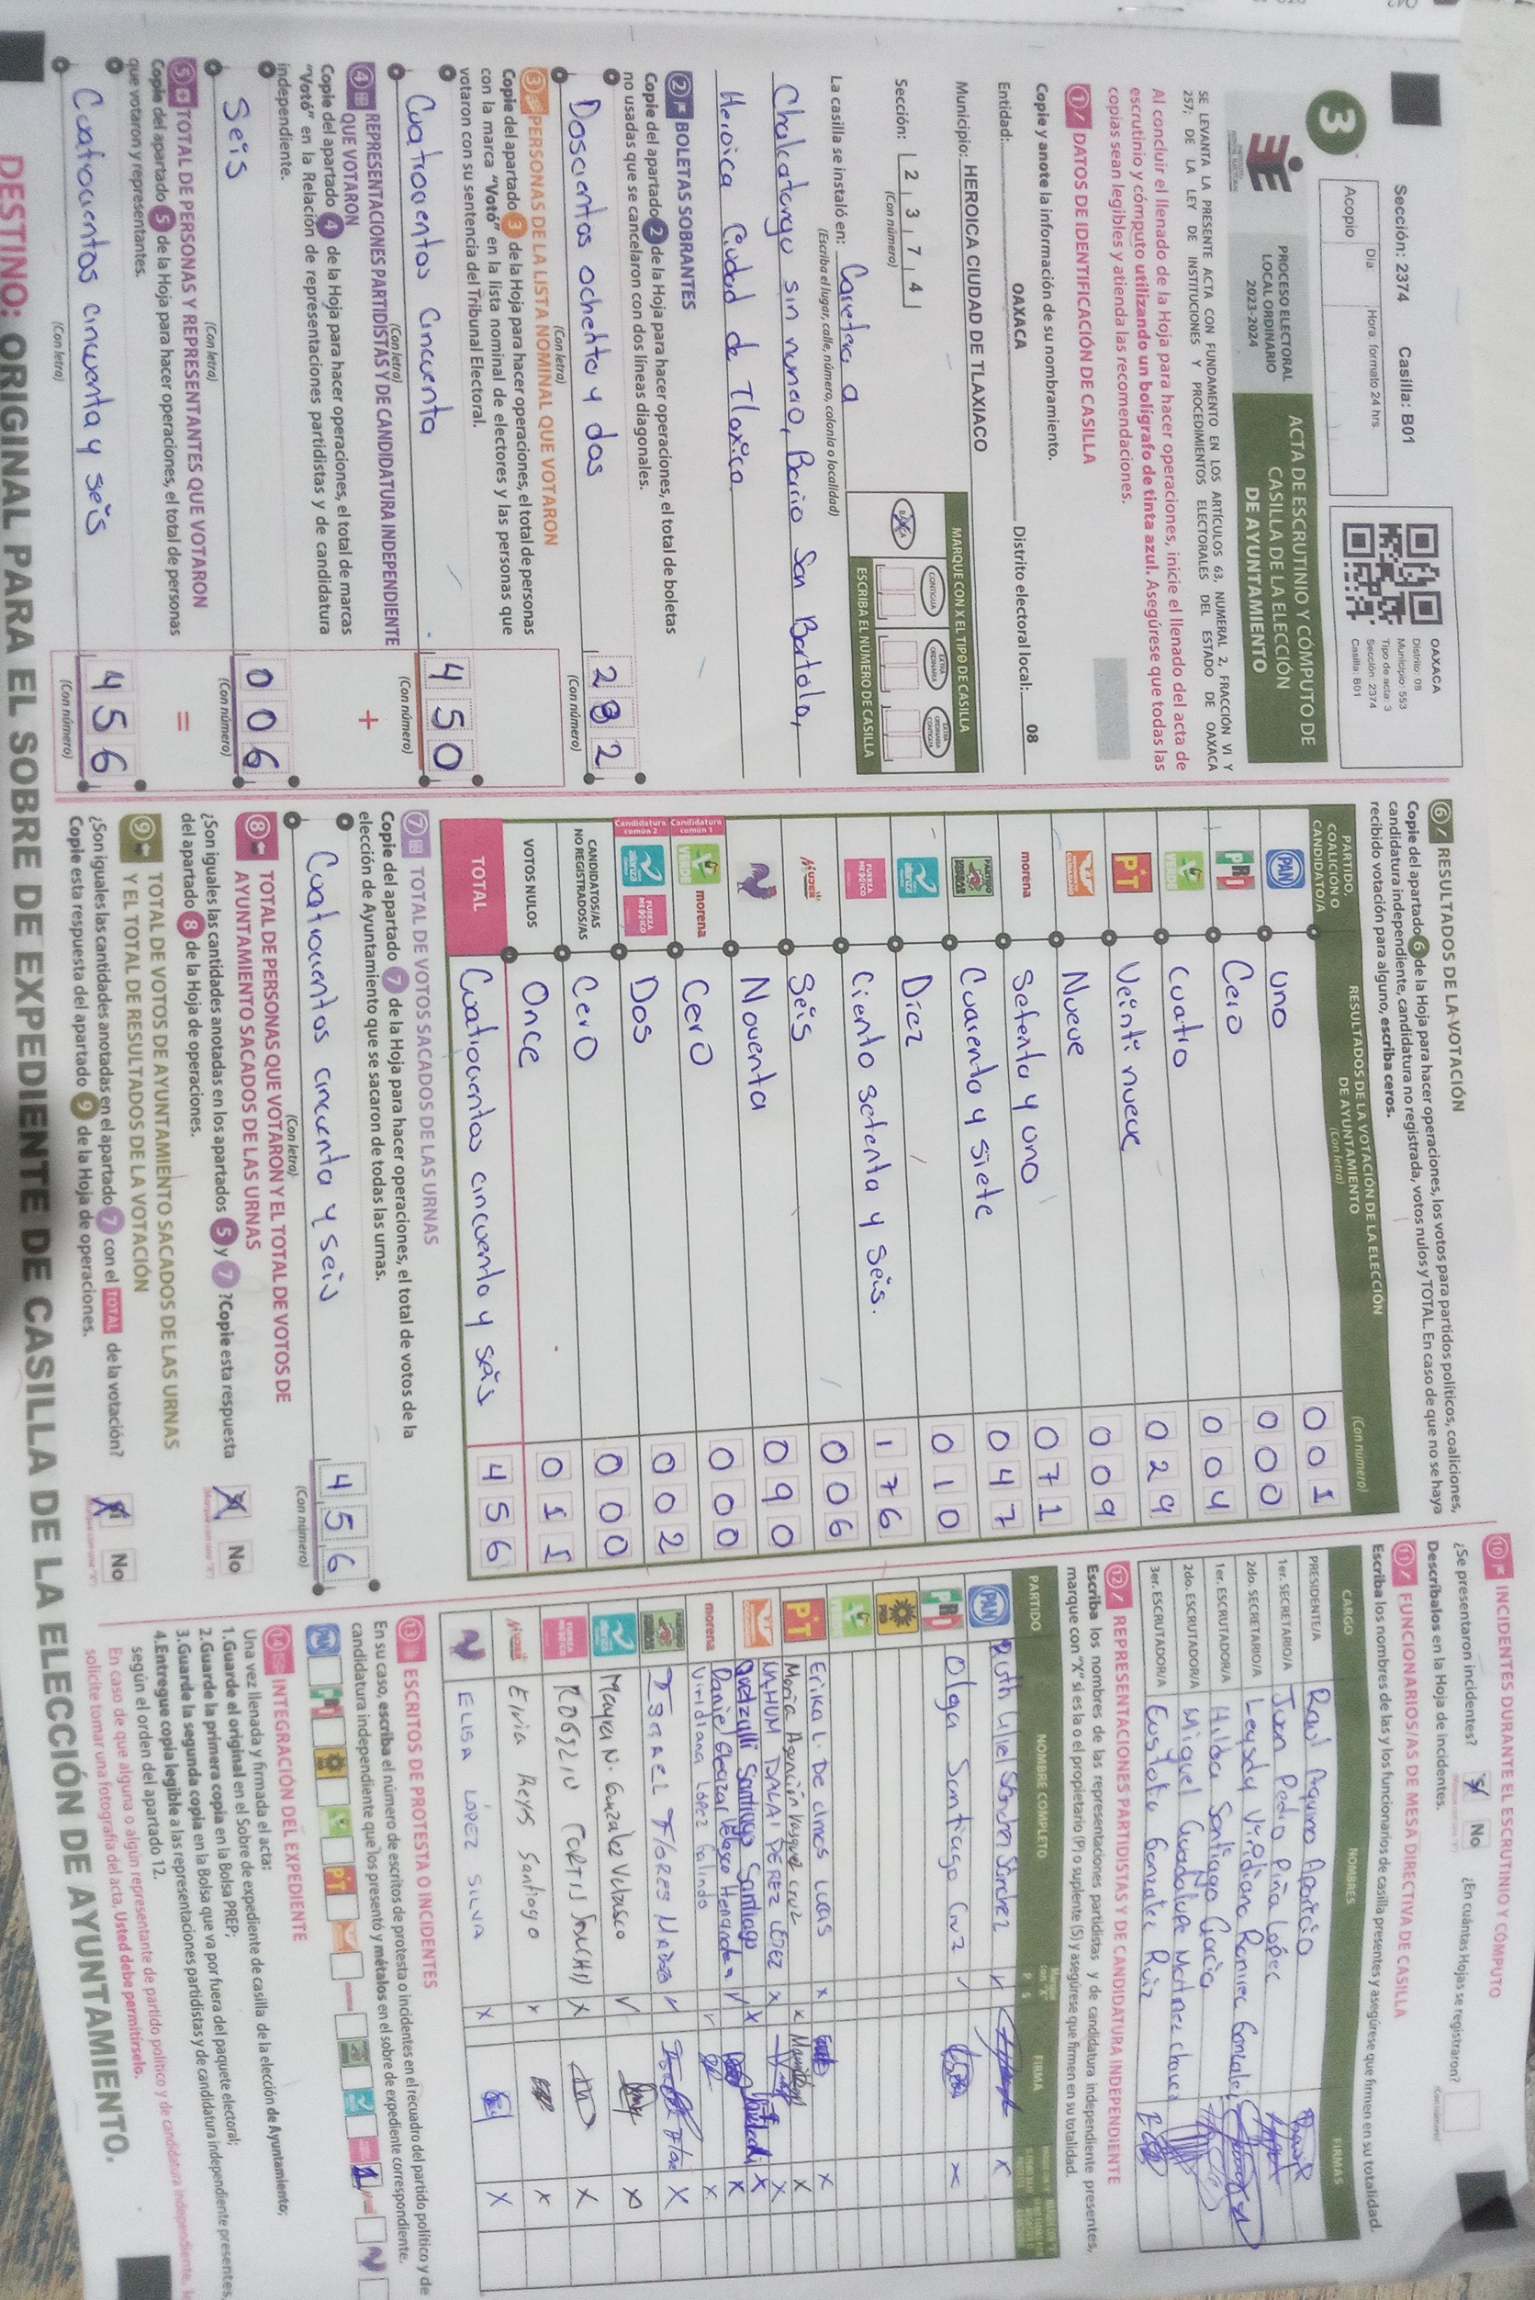 Sección: 2374 Casilla: B01
3
Acopio
Día
Hora: formato 24 hrs
OAXACA
Distrito: 08
Municipio: 553
Tipo de acta: 3
Sección: 2374
Casilla: B01
PROCESO ELECTORAL
LOCAL ORDINARIO
2023-2024
ACTA DE ESCRUTINIO Y CÓMPUTO DE
CASILLA DE LA ELECCIÓN
DE AYUNTAMIENTO
SE LEVANTA LA PRESENTE ACTA CON FUNDAMENTO EN LOS ARTÍCULOS 63, NUMERAL 2, FRACCIÓN VI Y
257; DE LA LEY DE INSTITUCIONES Y PROCEDIMIENTOS ELECTORALES DEL ESTADO DE OAXACA
Al concluir el llenado de la Hoja para hacer operaciones, inicie el llenado del acta de
escrutinio y cómputo utilizando un bolígrafo de tinta azul. Asegúrese que todas las
copias sean legibles y atienda las recomendaciones.
1 DATOS DE IDENTIFICACIÓN DE CASILLA
Copie y anote la información de su nombramiento.
Entidad: OAXACA Distrito electoral local: 08
Municipio: HEROICA CIUDAD DE TLAXIACO
Sección: 2 3 7 4
(Con número)
MARQUE CON X EL TIPO DE CASILLA
CONTIGUA
ESCRIBA EL NÚMERO DE CASILLA
La casilla se instaló en: Carretera a
(Escriba el lugar, calle, número, colonia o localidad)
Chalcatongo sin numero, Barrio San Bartolo,
Heroica Ciudad de Tlaxiaco
2 BOLETAS SOBRANTES
Copie del apartado 2 de la Hoja para hacer operaciones, el total de boletas
no usadas que se cancelaron con dos líneas diagonales.
Doscientos ochenta y dos 2 8 2
(Con letra) (Con número)
3 PERSONAS DE LA LISTA NOMINAL QUE VOTARON
Copie del apartado 3 de la Hoja para hacer operaciones, el total de personas
con la marca "Votó" en la lista nominal de electores y las personas que
votaron con su sentencia del Tribunal Electoral.
Cuatrocientos cincuenta 4 5 0
(Con letra) (Con número)
4 REPRESENTACIONES PARTIDISTAS Y DE CANDIDATURA INDEPENDIENTE
QUE VOTARON
+
Copie del apartado 4 de la Hoja para hacer operaciones, el total de marcas
"Votó" en la Relación de representaciones partidistas y de candidatura
independiente.
Seis 0 0 6
(Con letra) (Con número)
5 TOTAL DE PERSONAS Y REPRESENTANTES QUE VOTARON
=
Copie del apartado 5 de la Hoja para hacer operaciones, el total de personas
que votaron y representantes.
Cuatrocientos cincuenta y seis 4 5 6
(Con letra) (Con número)
6 RESULTADOS DE LA VOTACIÓN
Copie del apartado 6 de la Hoja para hacer operaciones, los votos para partidos políticos, coaliciones,
candidatura independiente, candidatura no registrada, votos nulos y TOTAL. En caso de que no se haya
recibido votación para alguno, escriba ceros.
PARTIDO,
COALICIÓN O
CANDIDATO/A
RESULTADOS DE LA VOTACIÓN DE LA ELECCIÓN
DE AYUNTAMIENTO
(Con letra)
(Con número)
PAN uno 0 0 1
PRI Cero 0 0 0
VERDE cuatro 0 0 4
PT Veinti nueve 0 2 9
Nueve 0 0 9
morena Setenta y uno 0 7 1
Cuarenta y siete 0 4 7
Diez 0 1 0
FUERZA MÉXICO Ciento setenta y seis. 1 7 6
MUJER Seis 0 0 6
Noventa 0 9 0
Candidatura común 1 VERDE morena Cero 0 0 0
Candidatura común 2 FUERZA MÉXICO Dos 0 0 2
CANDIDATOS/AS
NO REGISTRADOS/AS Cero 0 0 0
VOTOS NULOS Once 0 1 1
TOTAL Cuatrocientos cincuenta y seis 4 5 6
7 TOTAL DE VOTOS SACADOS DE LAS URNAS
Copie del apartado 7 de la Hoja para hacer operaciones, el total de votos de la
elección de Ayuntamiento que se sacaron de todas las urnas.
Cuatrocientos cincuenta y seis 4 5 6
(Con letra) (Con número)
8 TOTAL DE PERSONAS QUE VOTARON Y EL TOTAL DE VOTOS DE
AYUNTAMIENTO SACADOS DE LAS URNAS
¿Son iguales las cantidades anotadas en los apartados 5 y 7 ? Copie esta respuesta
del apartado 8 de la Hoja de operaciones.
No
9 TOTAL DE VOTOS DE AYUNTAMIENTO SACADOS DE LAS URNAS
Y EL TOTAL DE RESULTADOS DE LA VOTACIÓN
¿Son iguales las cantidades anotadas en el apartado 7 con el TOTAL de la votación?
Copie esta respuesta del apartado 9 de la Hoja de operaciones.
No
10 INCIDENTES DURANTE EL ESCRUTINIO Y CÓMPUTO
¿Se presentaron incidentes? No ¿En cuántas Hojas se registraron?
Descríbalos en la Hoja de incidentes.
11 FUNCIONARIOS/AS DE MESA DIRECTIVA DE CASILLA
Escriba los nombres de las y los funcionarios de casilla presentes y asegúrese que firmen en su totalidad.
CARGO NOMBRES FIRMAS
PRESIDENTE/A Raul Aquino Aparicio
1er. SECRETARIO/A Juan Pedro Piña López
2do. SECRETARIO/A Leysdy Viridiana Ramirez Gonzalez
1er. ESCRUTADOR/A Hilda Santiago Garcia
2do. ESCRUTADOR/A Miguel Guadalupe Martinez Chavez
3er. ESCRUTADOR/A Custoto Gonzalez Ruiz
12 REPRESENTACIONES PARTIDISTAS Y DE CANDIDATURA INDEPENDIENTE
Escriba los nombres de las representaciones partidistas y de candidatura independiente presentes,
marque con "X" si es la o el propietario (P) o suplente (S) y asegúrese que firmen en su totalidad.
PARTIDO NOMBRE COMPLETO P S FIRMA
PAN Ruth Sanchez
PRI Olga Santiago Cruz
PRD
VERDE
PT Erika L. De Lmos Lucas
Maria Asunción Vasquez Cruz
NAHUM DALAI PEREZ LÓPEZ
Quetzalli Santiago Santiago
morena Daniel Eleazar Velasco Hernandez
Viridiana López Galindo
ISRAEL FLORES
Mayra N. Gonzalez Velasco
FUERZA MÉXICO ROGELIO CORTES
MUJER Elvia Reyes Santiago
ELISA LÓPEZ SILVA
13 ESCRITOS DE PROTESTA O INCIDENTES
En su caso, escriba el número de escritos de protesta o incidentes en el recuadro del partido político y de
candidatura independiente que los presentó y métalos en el sobre de expediente correspondiente.
1
14 INTEGRACIÓN DEL EXPEDIENTE
Una vez llenada y firmada el acta:
1.Guarde el original en el Sobre de expediente de casilla de la elección de Ayuntamiento;
2.Guarde la primera copia en la Bolsa PREP;
3.Guarde la segunda copia en la Bolsa que va por fuera del paquete electoral;
4.Entregue copia legible a las representaciones partidistas y de candidatura independiente presentes,
según el orden del apartado 12.
En caso de que alguna o algún representante de partido político y de candidatura independiente
solicite tomar una fotografía del acta, Usted debe permitírselo.
DESTINO: ORIGINAL PARA EL SOBRE DE EXPEDIENTE DE CASILLA DE LA ELECCIÓN DE AYUNTAMIENTO.